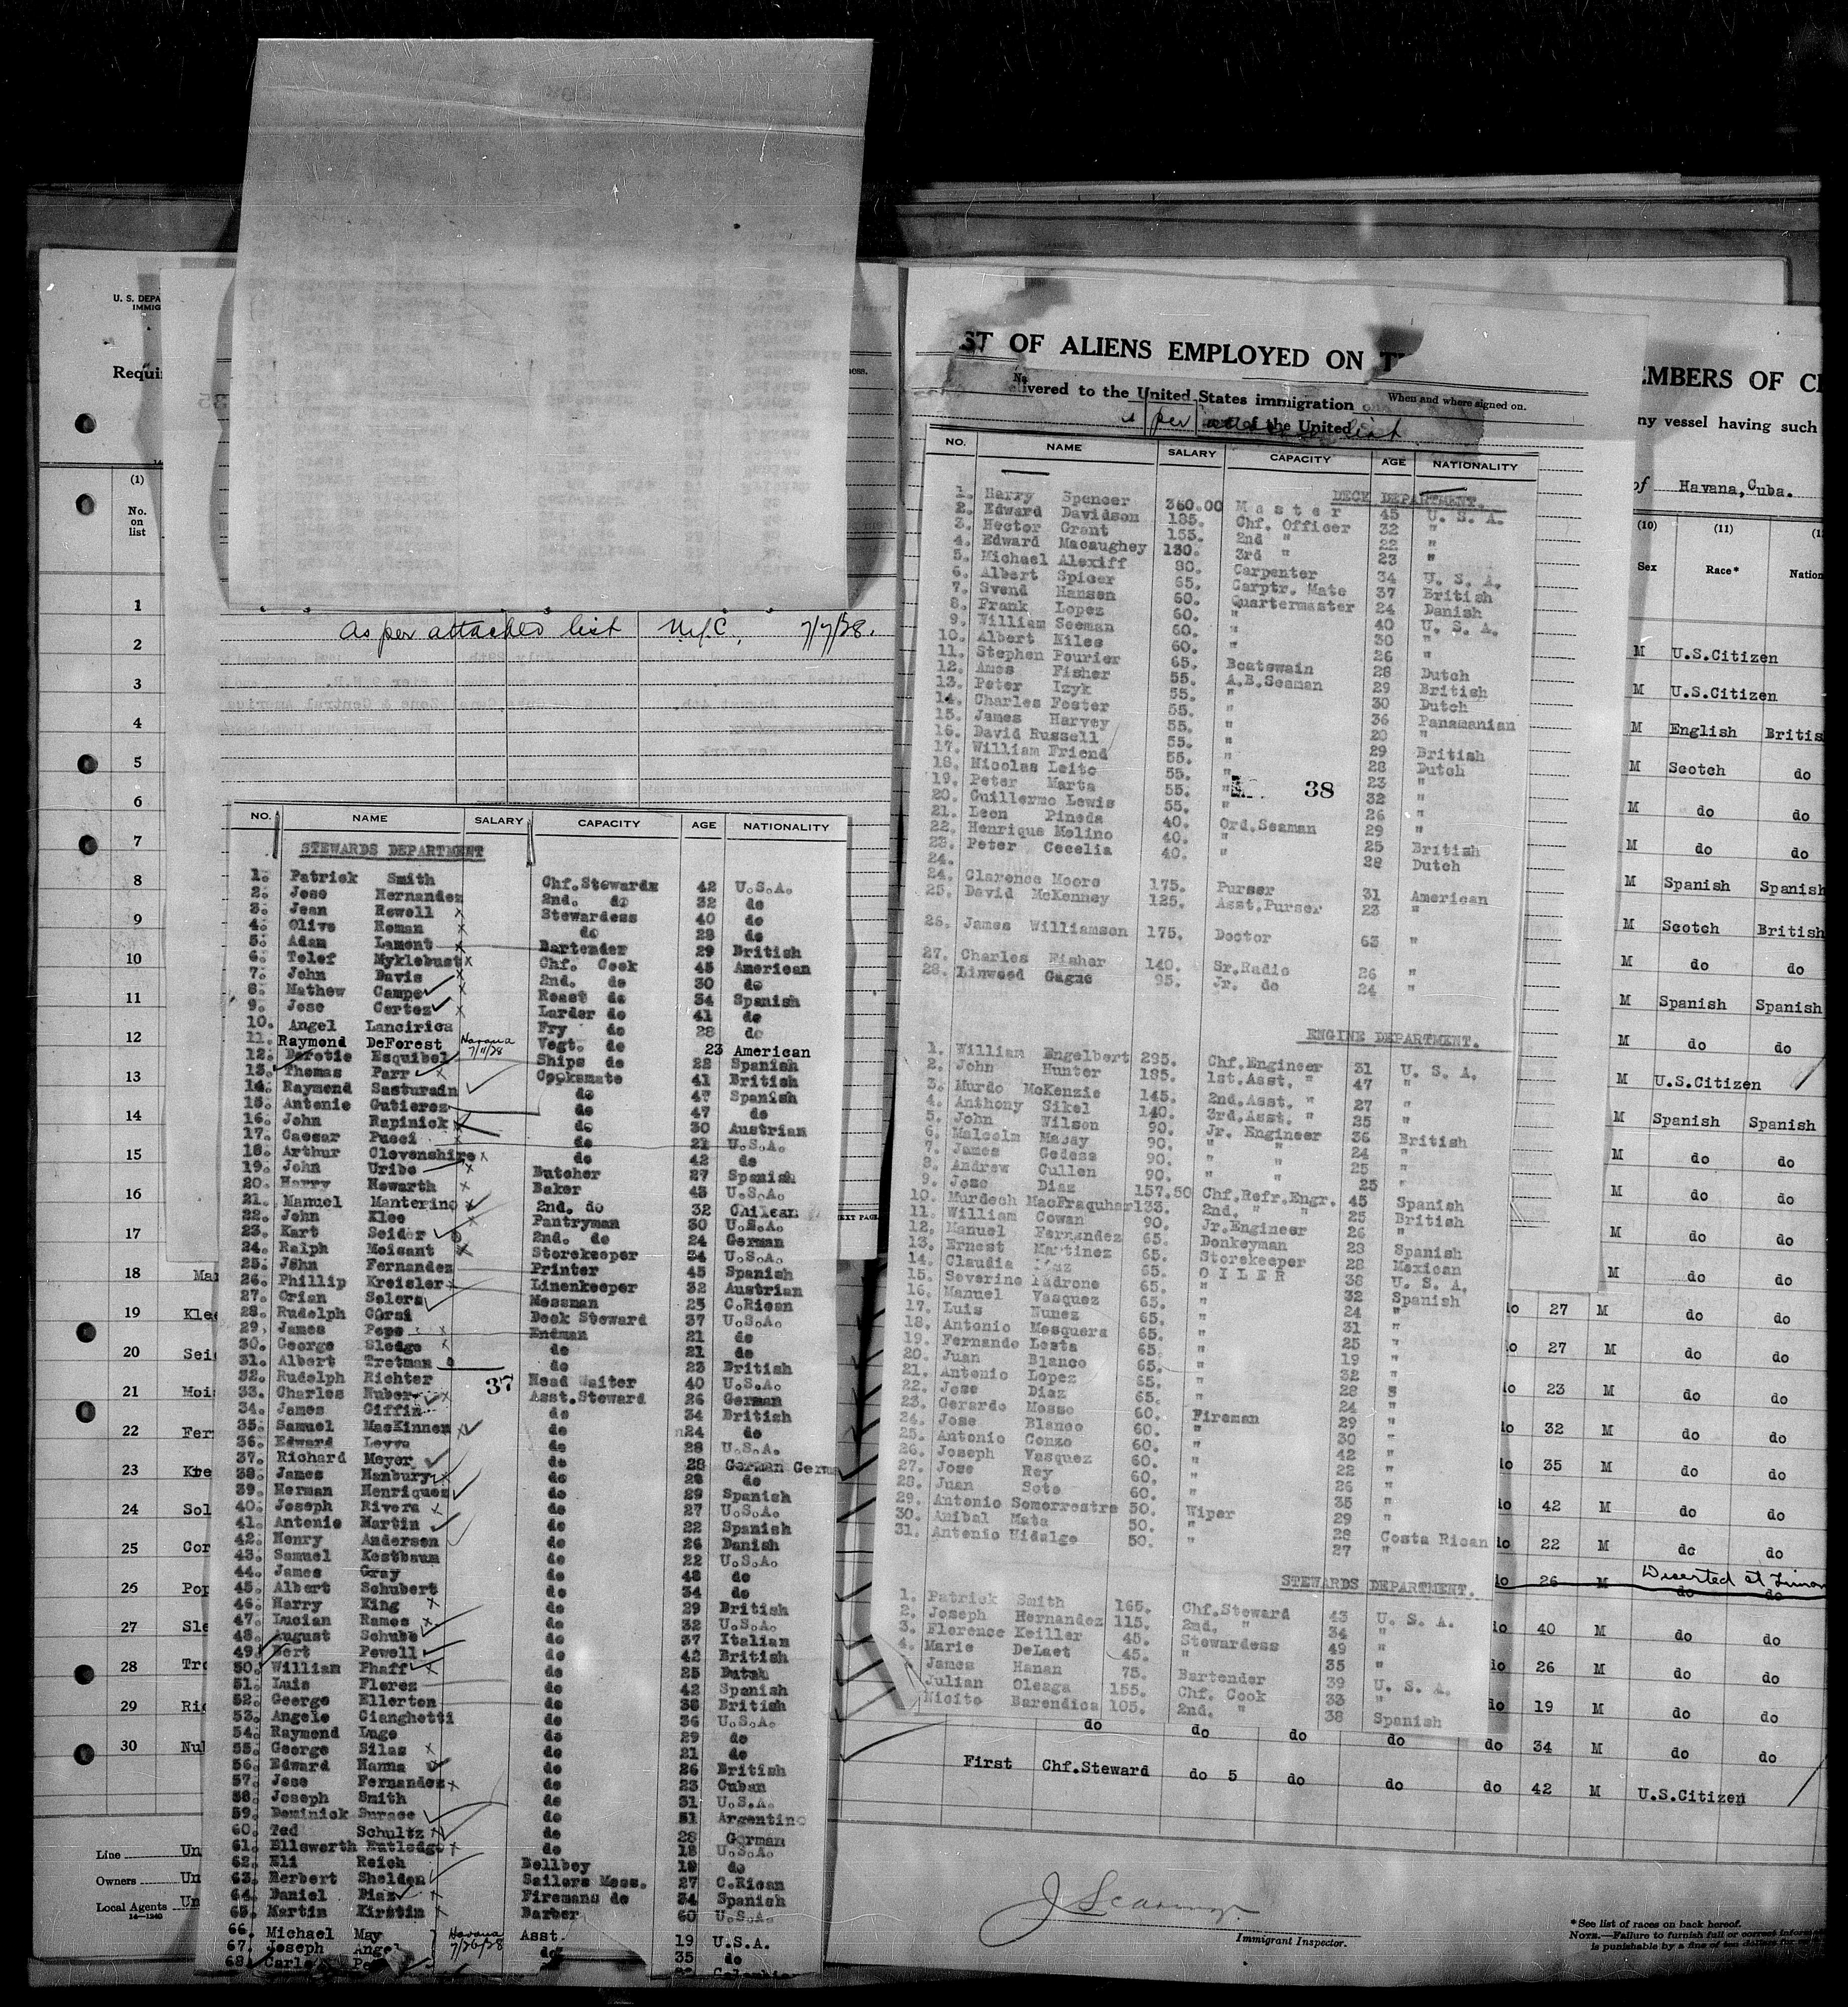 U. S. DEPA
IMMIG
Requi
(1)
No.
on
list
1
2
3
4
5
6
7
8
9
10
11
12
13
14
15
16
17
18 Mar
19 Klee
20 Sei
21 Mois
22 Fer
23 Kre
24 Sol
25 Cor
26 Pop
27 Sle
28 Tro
29 Ric
30 Nul
Line Un
Owners Un
Local Agents Un
14-1240
as per attached list N.Y.C. 7/7/28.
NO. NAME SALARY CAPACITY AGE NATIONALITY
STEWARDS DEPARTMENT
1. Patrick Smith Chf.Steward 42 U.S.A.
2. Jose Hernandez 2nd. do 32 do
3. Jean Rowell x Stewardess 40 do
4. Olive Roman x do 28 do
5. Adam Lament x Bartender 29 British
6. Telef Myklebust x Chf. Cook 45 American
7. John Davis x 2nd. do 30 do
8. Mathew Campe x Roast do 34 Spanish
9. Jose Cortez x Larder do 41 do
10. Angel Lancirica Fry do 28 do
11. Raymond DeForest Havana 7/11/28 Vegt. do 23 American
12. Esquibel Ships do 22 Spanish
13. Thomas Parr x Cooksmate 41 British
14. Raymond Sasturain do 47 Spanish
15. Antonio Gutierez do 47 do
16. John Rapinick do 30 Austrian
17. Caesar Pucci x do 21 U.S.A.
18. Arthur Clevenshire x do 42 do
19. John Uribe x Butcher 27 Spanish
20. Harry Howarth x Baker 43 U.S.A.
21. Manuel Manterino 2nd. do 32 Chilean
22. John Klee x Pantryman 30 U.S.A.
23. Kart Seider 2nd. do 24 German
24. Ralph Moisant x Storekeeper 34 U.S.A.
25. John Fernandez Printer 45 Spanish
26. Phillip Kreisler Linenkeeper 32 Austrian
27. Orian Solera Messman 25 C.Rican
28. Rudolph Deck Steward 37 U.S.A.
29. James Pope x Endman 21 do
30. George Sledge x do 21 do
31. Albert Trotman do 23 British
32. Rudolph Richter Head Waiter 40 U.S.A.
37
33. Charles Nuber x Asst.Steward 26 German
34. James Giffin do 34 British
35. Samuel MacKinnon x do 24 do
36. Edward do 28 U.S.A.
37. Richard Meyer do 28 German Germa
38. James Hanbury x do 28 do
39. Herman Henriques do 29 Spanish
40. Joseph Rivera x do 27 U.S.A.
41. Antonio Martin do 22 Spanish
42. Henry Andersen do 26 Danish
43. Samuel Kestbaum do 22 U.S.A.
44. James Gray do 48 do
45. Albert Schubert do 34 do
46. Harry King x do 29 British
47. Lucian Rames x do 32 U.S.A.
48. August Schube do 37 Italian
49. Bert Powell do 42 British
50. William Phaff x do 25 Dutch
51. Luis Flores do 42 Spanish
52. George Ellerton do 38 British
53. Angelo Cianghetti do 36 U.S.A.
54. Raymond Lugo do 29 do
55. George Silas x do 21 do
56. Edward Hanna do 26 British
57. Jose Fernandez x do 23 Cuban
58. Joseph Smith do 31 U.S.A.
59. Dominick Surace do 51 Argentino
60. Ted Schultz x do 28 German
61. Ellsworth Rutledge x do 18 U.S.A.
62. Eli Reich Bellboy 19 do
63. Herbert Sheldon Sailors Mess. 27 C.Rican
64. Daniel Diaz x Firemans do 34 Spanish
65. Martin Kirstin x Barber 60 U.S.A.
66. Michael May Havana 7/26/28 Asst. 19 U.S.A.
67. Joseph Angel do 35 do
68. Carlo
ness.
EXT PAGE
ST OF ALIENS EMPLOYED ON T
ivered to the United States immigration
When and where signed on.
per list
of the United
NO. NAME SALARY CAPACITY AGE NATIONALITY
DECK DEPARTMENT.
1. Harry Spencer 350.00 Master 45 U. S. A.
2. Edward Davidson 185. Chf. Officer 32 "
3. Hector Grant 155. 2nd " 22 "
4. Edward Macaughey 130. 3rd " 23 "
5. Michael Alexiff 80. Carpenter 34 U. S. A.
6. Albert Spicer 65. Carptr. Mate 37 British
7. Svend Hansen 60. Quartermaster 24 Danish
8. Frank Lopez 60. " 40 U. S. A.
9. William Seeman 60. " 30 "
10. Albert Niles 60. " 26 "
11. Stephen Fourier 65. Boatswain 28 Dutch
12. Amos Fisher 55. A.B.Seaman 29 British
13. Peter Izyk 55. " 30 Dutch
14. Charles Foster 55. " 36 Panamanian
15. James Harvey 55. " 20 "
16. David Russell 55. " 29 British
17. William Friend 55. " 28 Dutch
18. Nicolas Leito 55. " 23 "
19. Peter Marta 55. " 32 "
38
20. Guillermo Lewis 55. 26 "
21. Leon Pineda 40. Ord.Seaman 29 "
22. Henrique Molino 40. " 25 British
23. Peter Cecelia 40. " 28 Dutch
24.
24. Clarence Moore 175. Purser 31 American
25. David McKenney 125. Asst.Purser 23 "
26. James Williamson 175. Doctor 63 "
27. Charles Fisher 140. Sr.Radio 26 "
28. Linwood Gagne 95. Jr. do 24 "
ENGINE DEPARTMENT.
1. William Engelbert 295. Chf.Engineer 31 U. S. A.
2. John Hunter 185. 1st.Asst. " 47 "
3. Murdo McKenzie 145. 2nd.Asst. " 27 "
4. Anthony Sikel 140. 3rd.Asst. " 25 "
5. John Wilson 90. Jr. Engineer 36 British
6. Malcolm Macay 90. " " 24 "
7. James Gedess 90. " " 25 "
8. Andrew Cullen 90. " " 25 "
9. Jose Diaz 157.50 Chf.Refr.Engr. 45 Spanish
10. Murdoch MacFraquhar 133. 2nd. " " 25 British
11. William Cowan 90. Jr.Engineer 26 "
12. Manuel Fernandez 65. Donkeyman 23 Spanish
13. Ernest Martinez 65. Storekeeper 28 Mexican
14. Claudia 65. OILER 38 U. S. A.
15. Severino Padrone 65. " 32 Spanish
16. Manuel Vasquez 65. " 24 "
17. Luis Nunez 65. " 31 "
18. Antonio Mosquera 65. " 25 "
19. Fernando Lesta 65. " 19 "
20. Juan Blanco 65. " 32 "
21. Antonio Lopez 65. " 28 "
22. Jose Diaz 65. " 24 "
23. Gerardo Mosso 60. Fireman 29 "
24. Jose Blanco 60. " 30 "
25. Antonio Conzo 60. " 42 "
26. Joseph Vasquez 60. " 22 "
27. Jose Rey 60. " 26 "
28. Juan Soto 60. " 35 "
29. Antonio Somorrostro 50. Wiper 29 "
30. Anibal Mata 50. " 28 Costa Rican
31. Antonio Hidalgo 50. " 27 "
STEWARDS DEPARTMENT.
1. Patrick Smith 165. Chf.Steward 43 U. S. A.
2. Joseph Hernandez 115. 2nd. " 34 "
3. Florence Keiller 45. Stewardess 49 "
4. Marie DeLaet 45. " 35 "
James Hanan 75. Bartender 39 U. S. A.
Julian Oleaga 155. Chf. Cook 33 "
Nicito Barendica 105. 2nd. " 38 Spanish
EMBERS OF C
ny vessel having such
of Havana, Cuba.
(10) (11)
Sex Race* Nation
M U.S.Citizen
M U.S.Citizen
M English Britis
M Scotch do
M do do
M do do
M Spanish Spanish
M Scotch British
M do do
M Spanish Spanish
M do do
M U.S.Citizen
M Spanish Spanish
M do do
M do do
M do do
M do do
do 27 M do do
do 27 M do do
do 23 M do do
do 32 M do do
do 35 M do do
do 42 M do do
do 22 M do do
do 26 M do do Deserted at Limon
do 40 M do do
do 26 M do do
do 19 M do do
do do do do do 34 M do do
First Chf.Steward do 5 do do do 42 M U.S.Citizen
Immigrant Inspector.
*See list of races on back hereof.
NOTE.—Failure to furnish full or correct inform
is punishable by a fine of ten dollars for